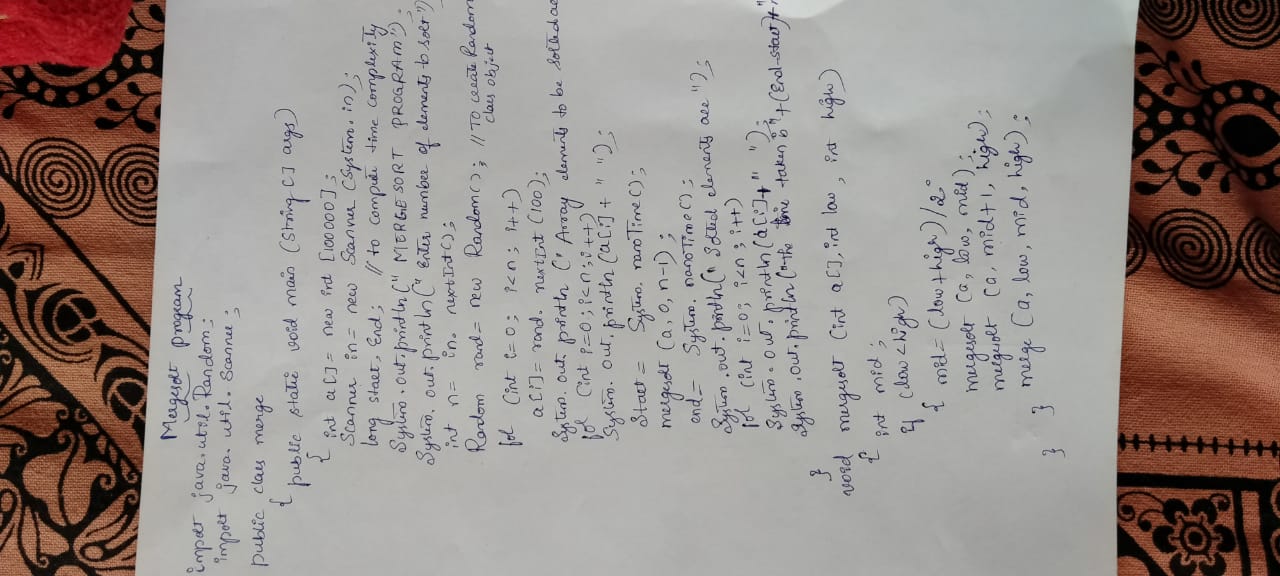 Mergesort program
import java.util.Random;
import java.util.Scanner;
public class merge
{
public static void main (String [] args)
{
int a[] = new int [100000];
Scanner in = new Scanner (System.in);
long start, End; // to compute time complexity
System.out.println (" MERGE SORT PROGRAM");
System.out.println (" Enter number of elements to sort")
int n = in.nextInt();
Random rand = new Random(); // To create Random
class object
for (int i=0; i<n; i++)
a[i] = rand.nextInt (100);
System.out.println (" Array elements to be sorted are
for (int i=0; i<n; i++)
System.out.println (a[i] + " ");
Start = System.nanoTime();
mergesort (a, 0, n-1);
end = System.nanoTime();
System.out.println (" Sorted elements are ");
for (int i=0; i<n; i++)
System.out.println (a[i] + " ");
System.out.println ("The time taken is" + (End-start) + "
}
void mergesort (int a[], int low, int high)
{ int mid;
if (low < high)
{ mid = (low + high) / 2;
mergesort (a, low, mid);
mergesort (a, mid+1, high);
merge (a, low, mid, high);
} }